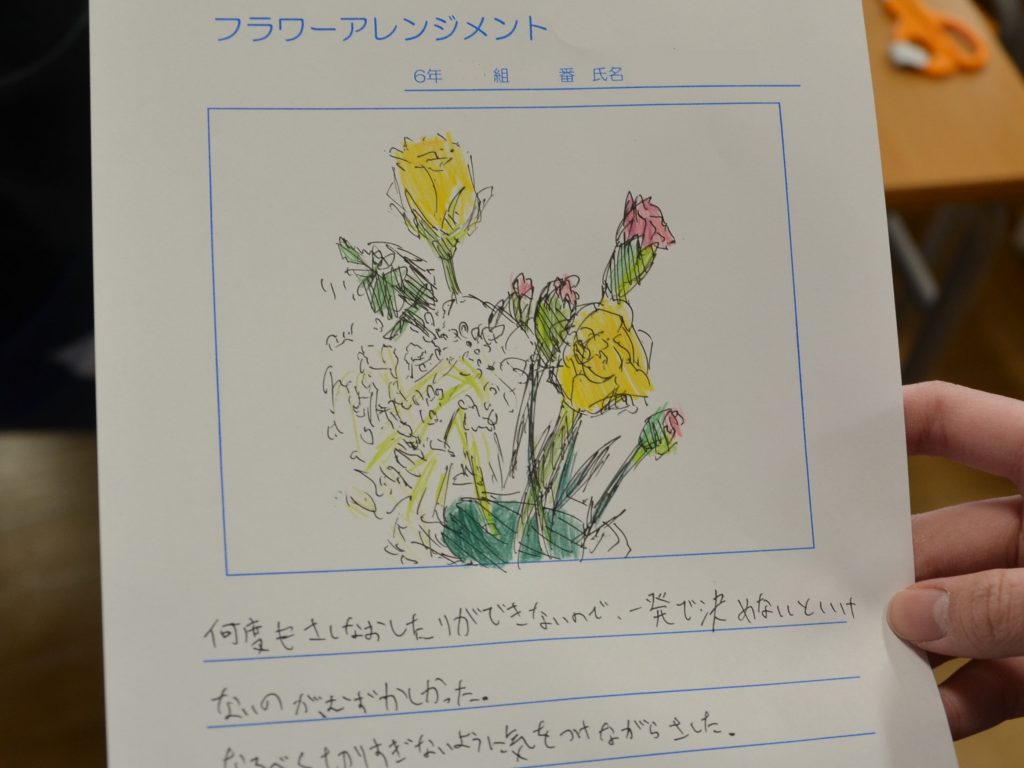 フラワーアレンジメント
6年 組 番 氏名
何度もさしなおしたりができないので、一発で決めないといけ
ないのがむずかしかった。
なるべく切りすぎないように気をつけながらさした。